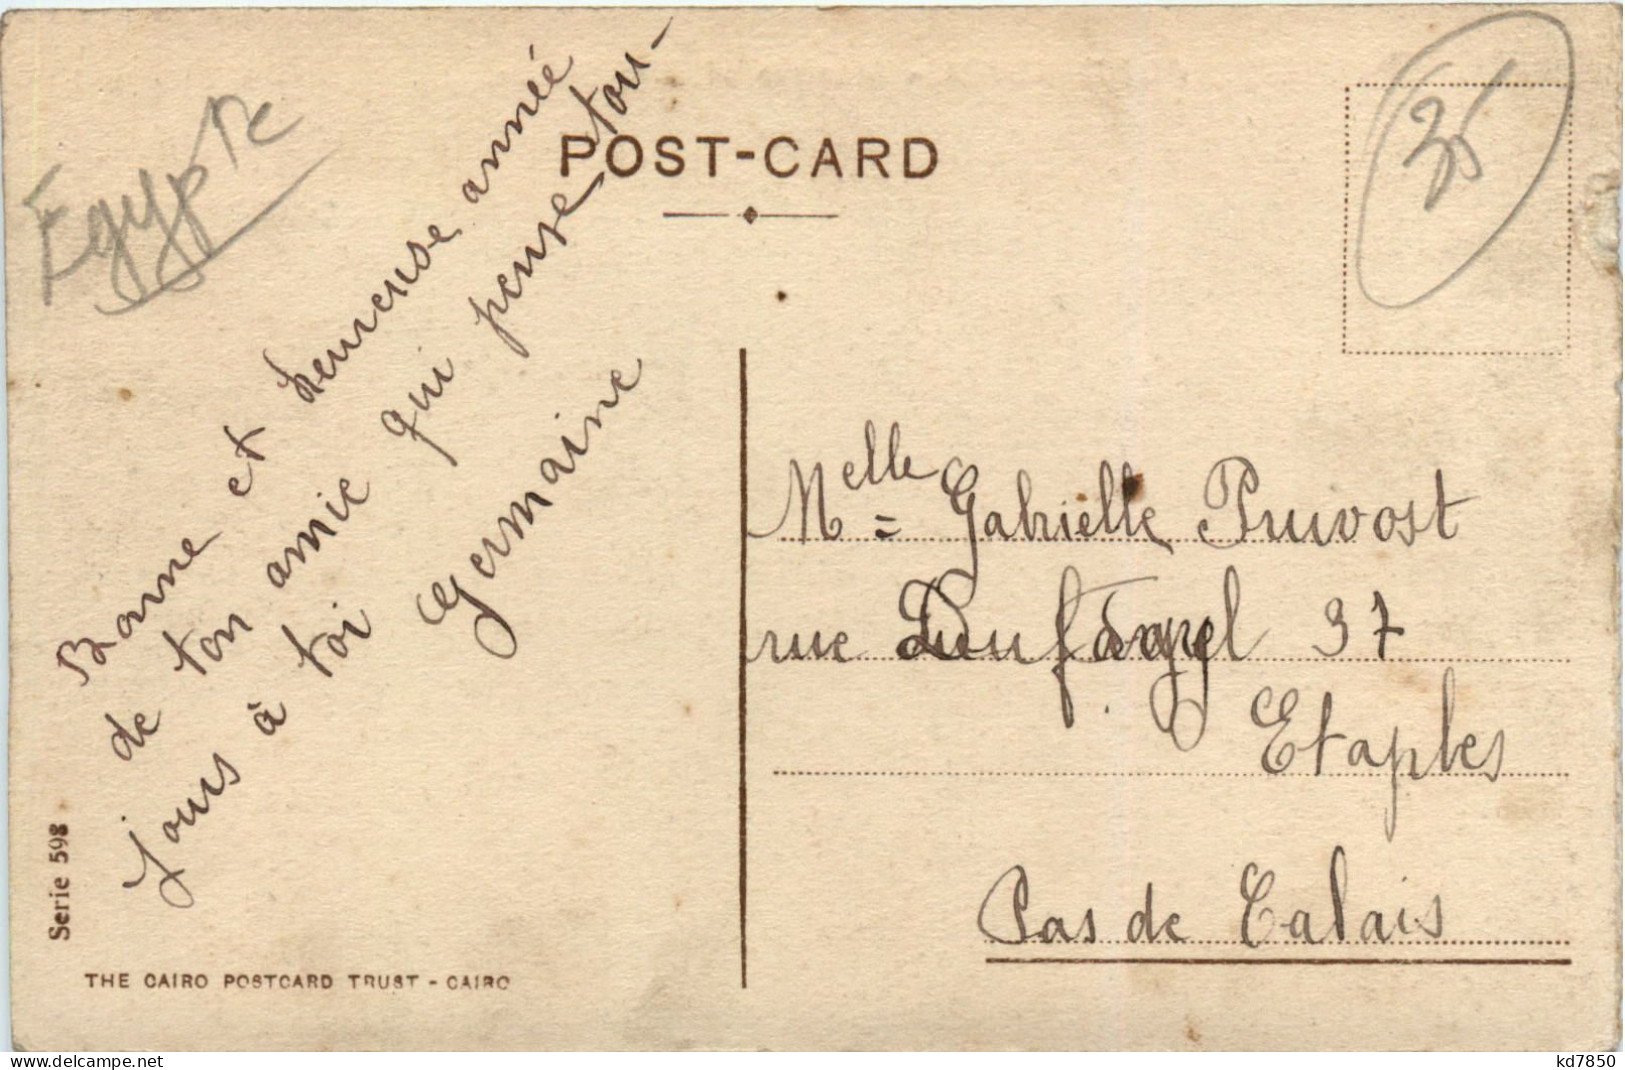 Egypte
35
POST-CARD
Bonne et heureuse année
de ton amie qui pense tou-
jours à toi
Germaine
Melle = Gabrielle Pruvost
rue 37
Etaples
Pas de Calais
Serie 598
THE CAIRO POSTCARD TRUST - CAIRO
www.delcampe.net
kd7850